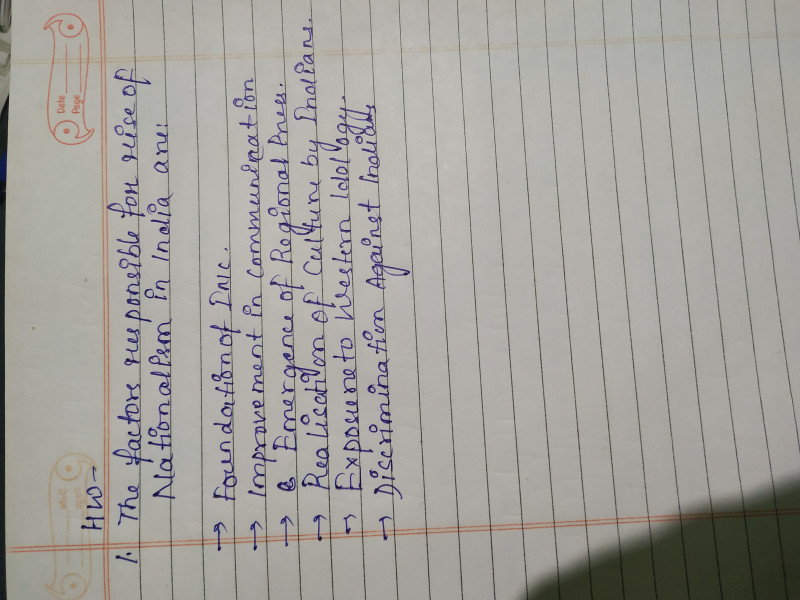 Date
Page
HW-
1. The factors responsible for rise of
Nationalism in India are:
→ Foundation of INC.
→ Improvement in Communication
→ Emergence of Regional Press.
→ Realisation of Culture by Indians.
→ Exposure to Western Idology.
→ Discrimination Against Indians